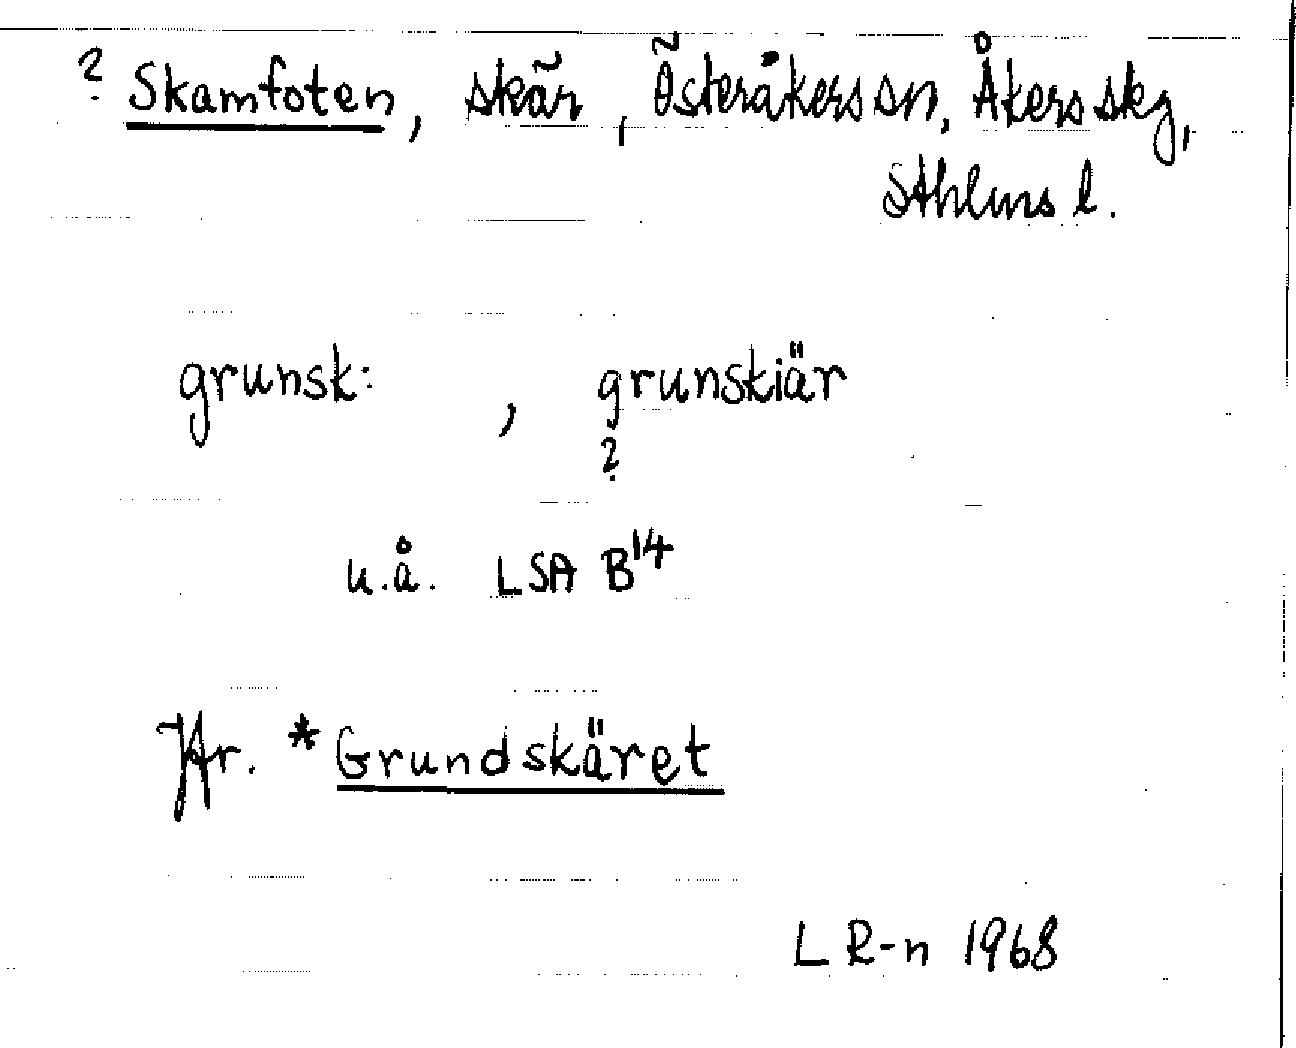 ? Skamfoten, skär, Österåkers sn, Åkers skg,
Sthlms l.
grunsk: , grunskiär
?
u.å. LSA B14
Jfr. *Grundskäret
L R-n 1968